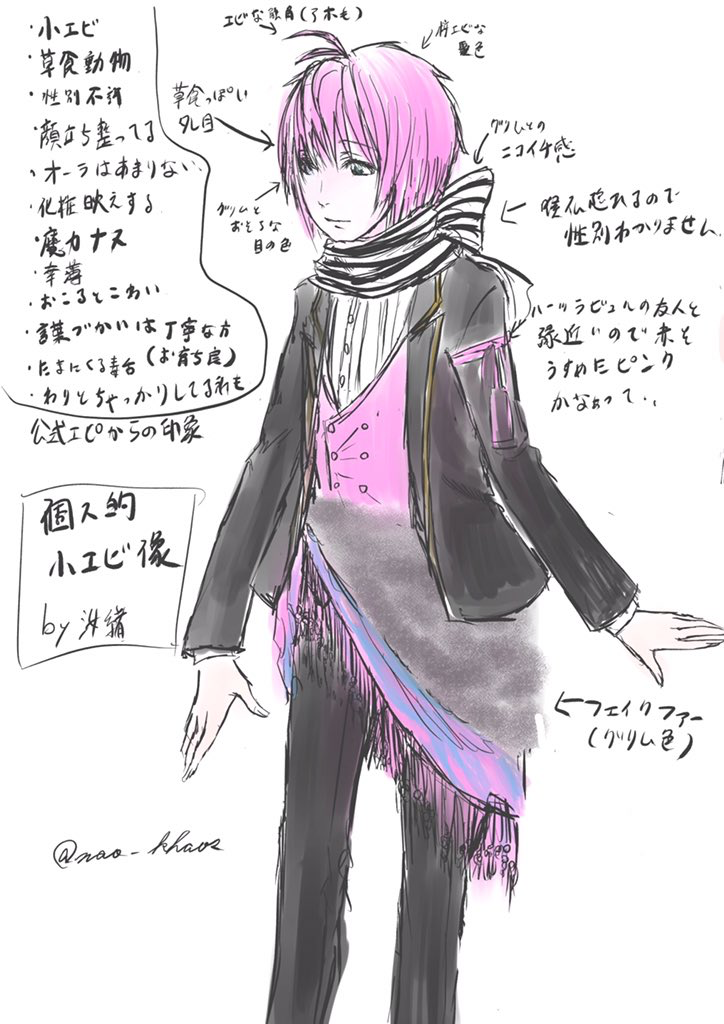 ・小エビ
・草食動物
・性別不詳
・顔立ち整ってる
・オーラはあまりない
・化粧映えする
・魔力ナス
・幸薄
・おこるとこわい
・言葉づかいは丁寧な方
(お育ち良)
・たまにくる毒舌
・わりとちゃっかりしてる
公式エピからの印象
個人的
小エビ像
by 沙緒
エビな触角(アホ毛)
桜エビな
髪色
草食っぽい
タレ目
グリムとの
ニコイチ感
グリムと
おそろな
目の色
喉仏隠れるので
性別わかりません
ハーツラビュルの友人と
縁近いので赤を
うすめたピンク
かなぁって・・
フェイクファー
(グリム色)
@nao_khaos